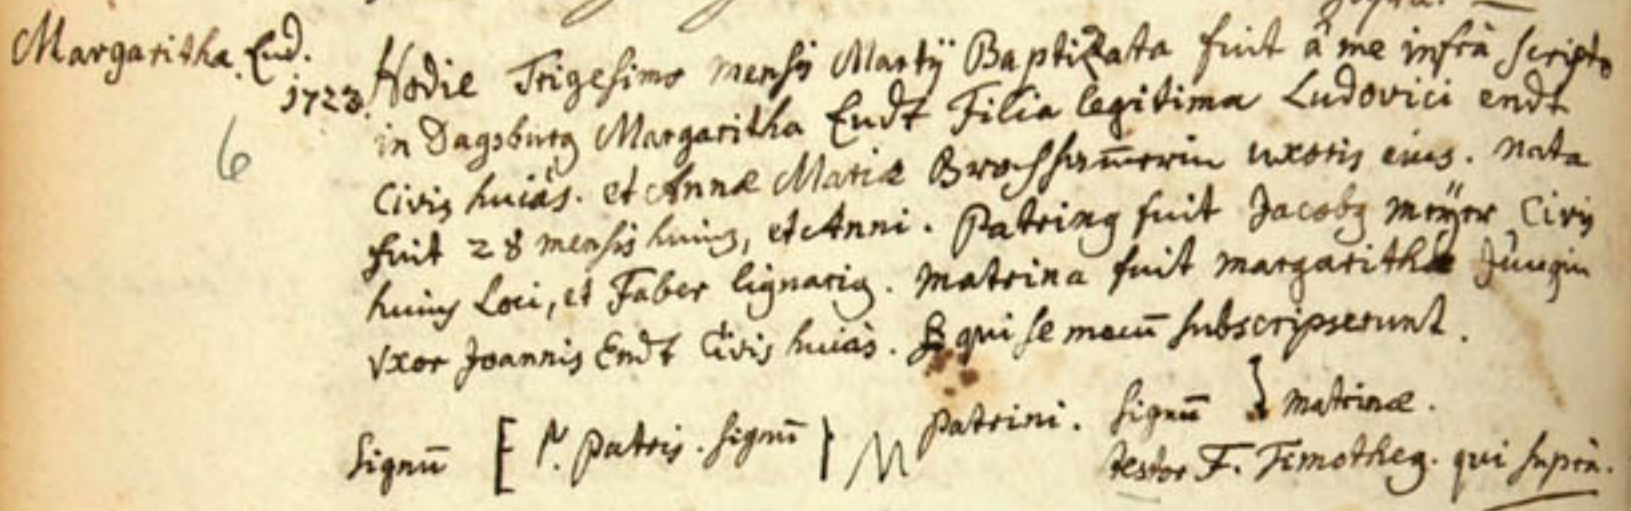 Margaritha End.
1723.
6
Hodie Trigesimo mensis Martÿ Baptizata fuit â me infrà scripto
in Dagsburg Margaritha Endt Filia legitima Ludovici endt
Civis huiás. et Annæ Mariæ uxoris eius. nata
fuit 28 mensis huius, et Anni. Patrinus fuit Jacobus meÿer Civis
huius Loci, et Faber lignarius. matrina fuit margaritha Jüngin
Vxor Joannis Endt Civis huiás. qui se mecū subscripserunt.
Signū [ Patris. signū patrini. signū } matrinæ.
testor F. Timotheus. qui suprà.